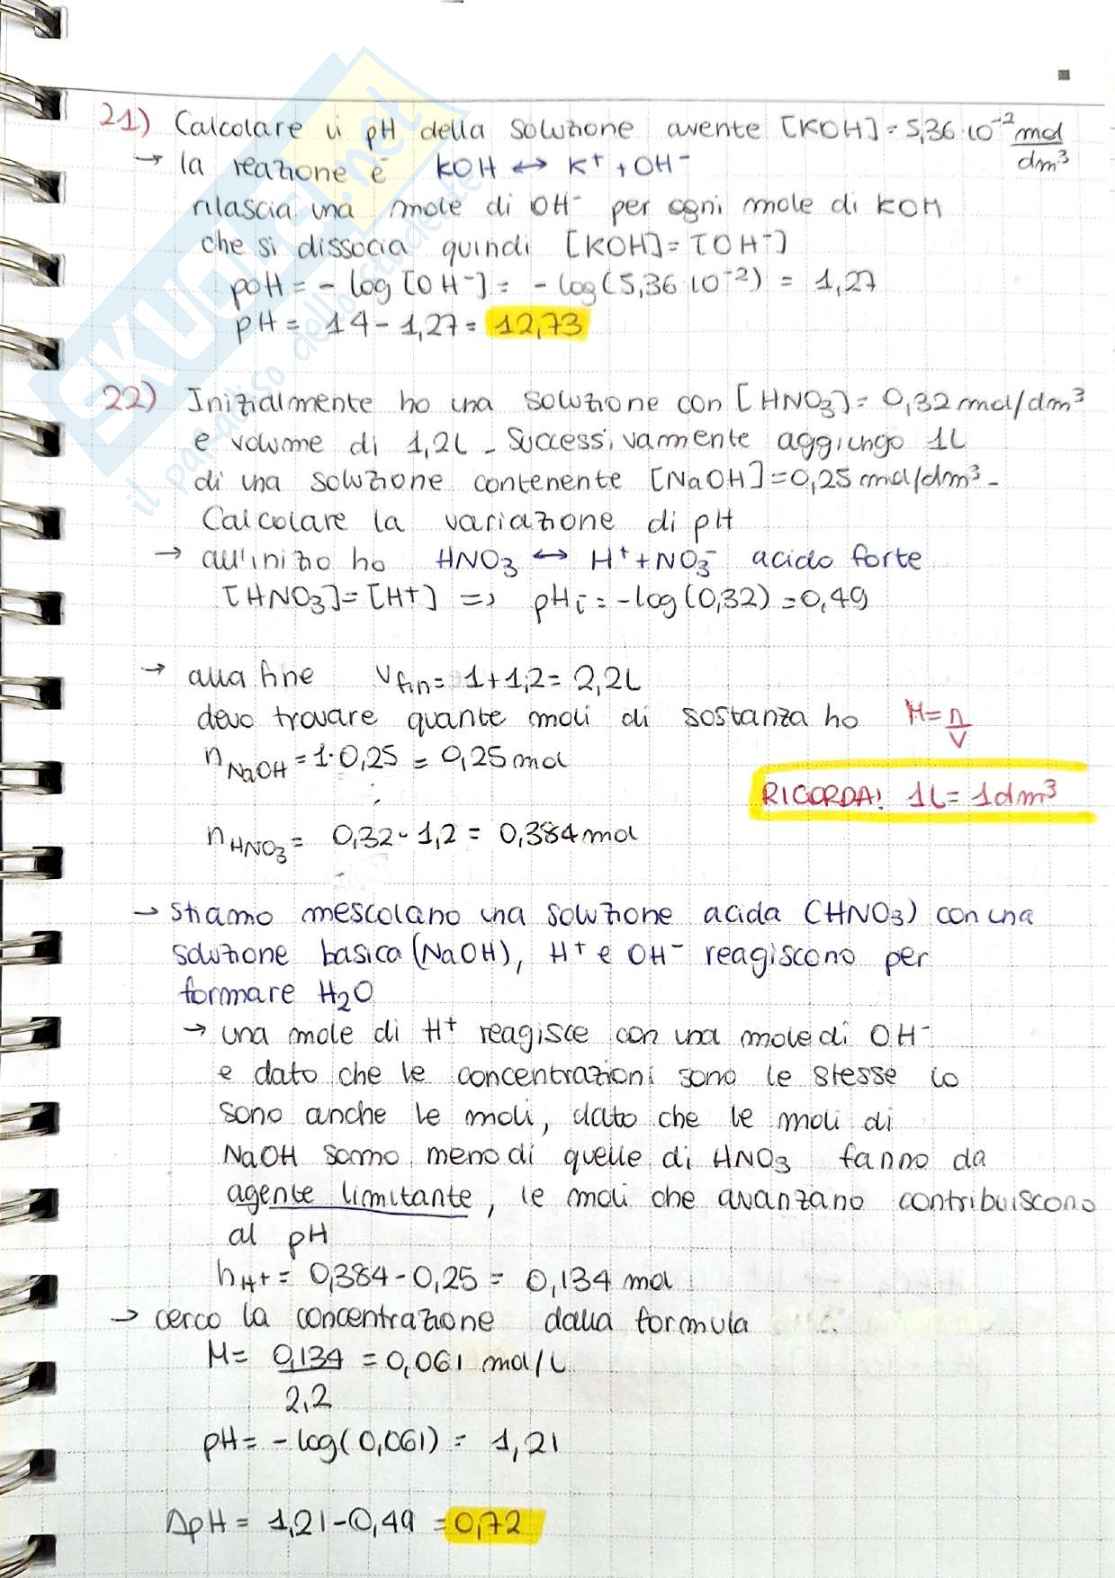 21) Calcolare il pH della soluzione avente [KOH] = 5,36·10⁻² mol/dm³
→ la reazione è KOH ↔ K⁺ + OH⁻
rilascia una mole di OH⁻ per ogni mole di KOH
che si dissocia quindi [KOH] = [OH⁻]
pOH = - log [OH⁻] = - log(5,36·10⁻²) = 1,27
pH = 14 - 1,27 = 12,73
22) Inizialmente ho una soluzione con [HNO₃] = 0,32 mol/dm³
e volume di 1,2L. Successivamente aggiungo 1L
di una soluzione contenente [NaOH] = 0,25 mol/dm³.
Calcolare la variazione di pH
→ all'inizio ho HNO₃ ↔ H⁺ + NO₃⁻ acido forte
[HNO₃] = [H+] => pHi = -log(0,32) = 0,49
→ alla fine Vfin = 1 + 1,2 = 2,2L
devo trovare quante moli di sostanza ho M = n/V
nNaOH = 1·0,25 = 0,25 mol
RICORDA! 1L = 1dm³
nHNO₃ = 0,32·1,2 = 0,384 mol
→ stiamo mescolano una soluzione acida (HNO₃) con una
soluzione basica (NaOH), H⁺ e OH⁻ reagiscono per
formare H₂O
→ una mole di H⁺ reagisce con una mole di OH⁻
e dato che le concentrazioni sono le stesse lo
sono anche le moli, dato che le moli di
NaOH sono meno di quelle di HNO₃ fanno da
agente limitante, le moli che avanzano contribuiscono
al pH
nH+ = 0,384 - 0,25 = 0,134 mol
→ cerco la concentrazione dalla formula
M = 0,134/2,2 = 0,061 mol/L
pH = -log(0,061) = 1,21
ΔpH = 1,21 - 0,49 = 0,72
SKUOLA.net
il paradiso dello studente